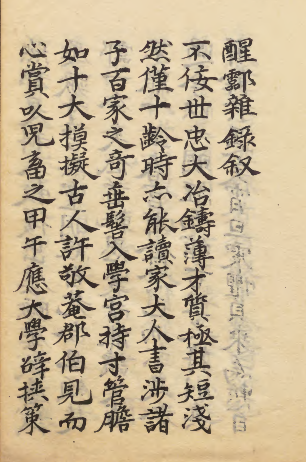 醒酆雜錄叙
不佞世忠大冶鑄薄才質極其短淺
然僅十齡時亦能讀家大人書涉諸
子百家之奇垂髫入學宮持寸管膽
如十大摸擬古人許敬菴郡伯見而
心賞以兒畜之甲午應大學辟挟策